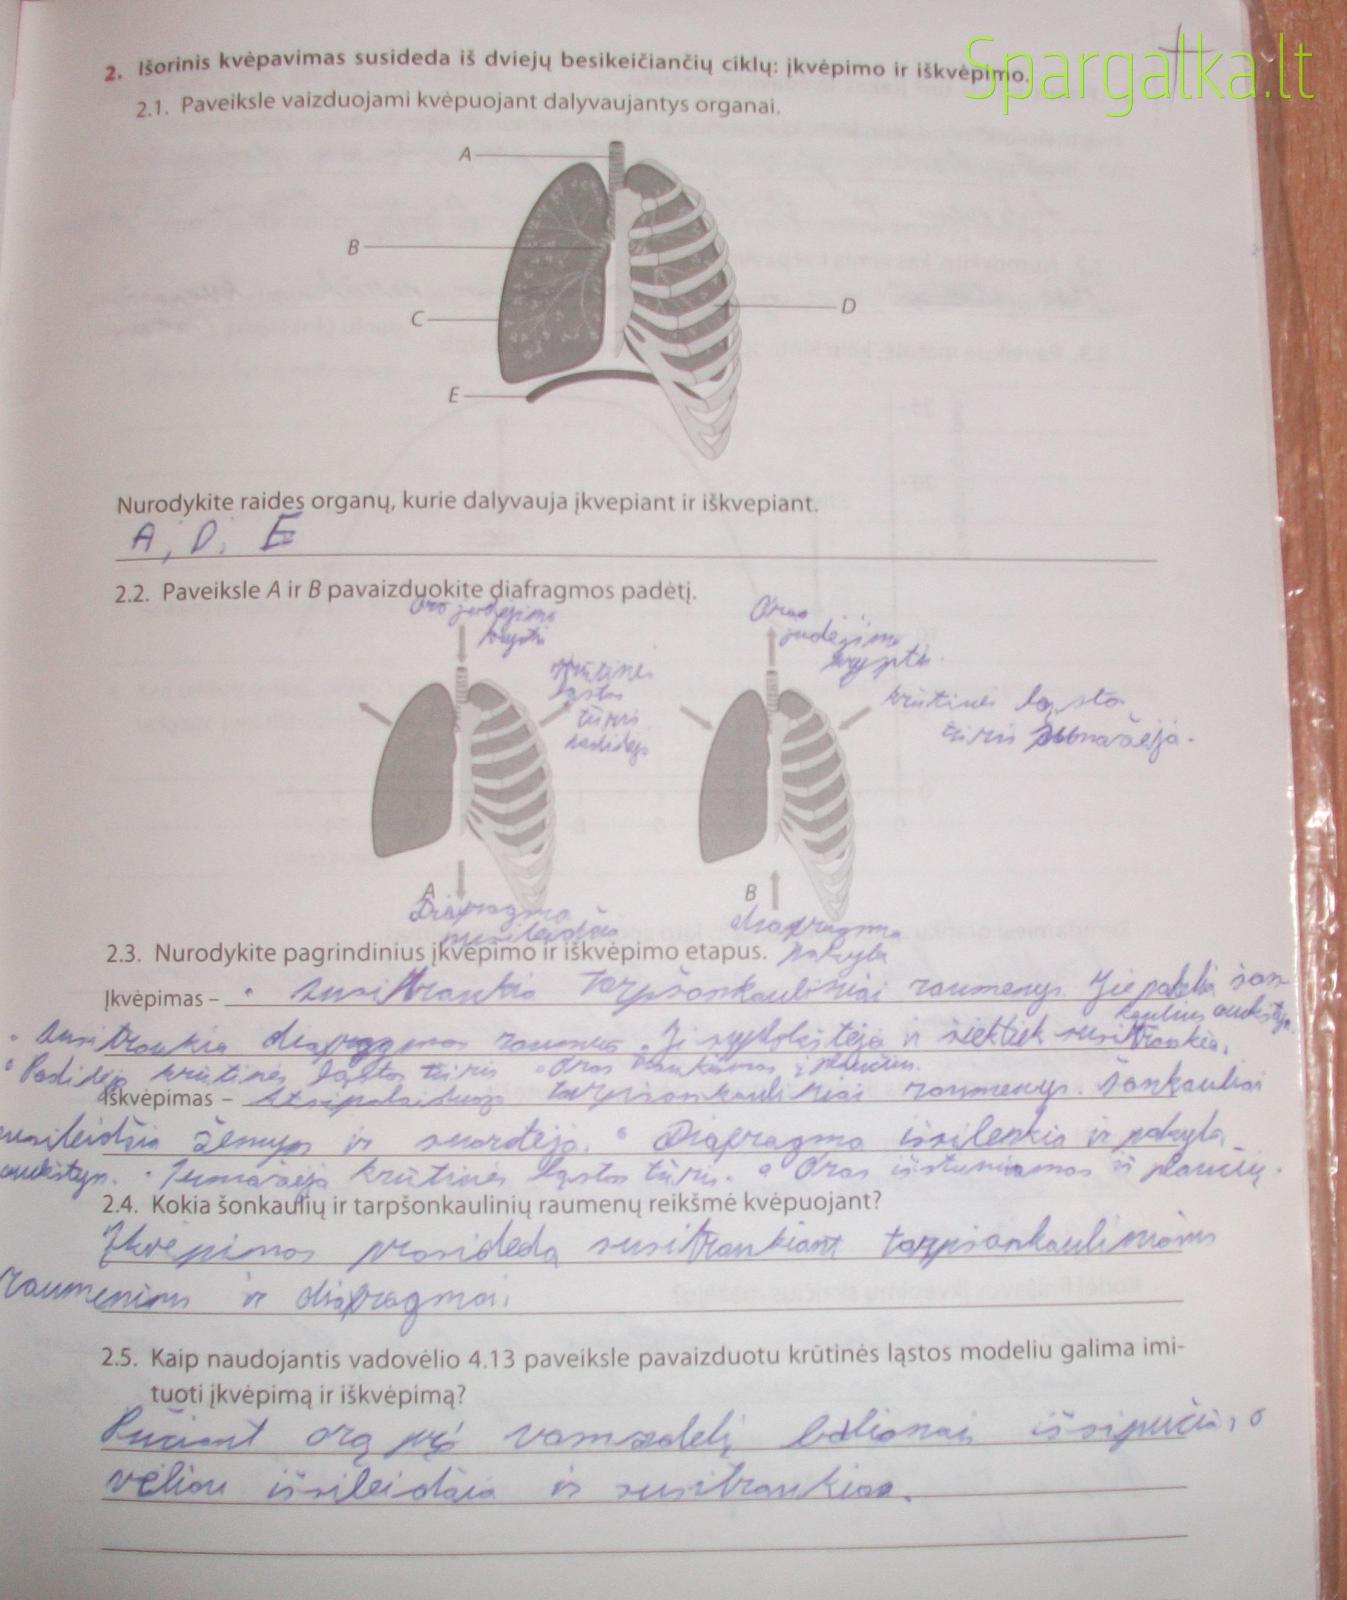 Spargalka.lt
2. Išorinis kvėpavimas susideda iš dviejų besikeičiančių ciklų: įkvėpimo ir iškvėpimo.
2.1. Paveiksle vaizduojami kvėpuojant dalyvaujantys organai.
A
B
D
C
E
Nurodykite raides organų, kurie dalyvauja įkvepiant ir iškvepiant.
A, D, E
2.2. Paveiksle A ir B pavaizduokite diafragmos padėtį.
Oro judėjimo
Oras
judėjimo
kryptis
krūtinės
ląstos
tūris
padidėja
krūtinės ląsta
tūris sumažėja.
A
B
Diafragma
nusileidžia
diafragma
pakyla
2.3. Nurodykite pagrindinius įkvėpimo ir iškvėpimo etapus.
Įkvėpimas – • susitraukia tarpšonkauliniai raumenys. Jie pakelia šon-
kaulius aukštyn.
• Susitraukia diafragmos raumuo. Ji suplokštėja ir šiek tiek susitraukia.
• Padidėja krūtinės ląstos tūris • Oras įtraukiamas į plaučius.
Iškvėpimas – atsipalaiduoja tarpšonkauliniai raumenys. Šonkauliai
nusileidžia žemyn ir suartėja. • Diafragma išsilenkia ir pakyla
aukštyn. • Sumažėja krūtinės ląstos tūris. • Oras išstumiamas iš plaučių.
2.4. Kokia šonkaulių ir tarpšonkaulinių raumenų reikšmė kvėpuojant?
Įkvėpimas prasideda susitraukiant tarpšonkauliniams
raumenims ir diafragmai.
2.5. Kaip naudojantis vadovėlio 4.13 paveiksle pavaizduotu krūtinės ląstos modeliu galima imi-
tuoti įkvėpimą ir iškvėpimą?
Pučiant orą pro vamzdelį balionai išsipučia, o
vėliau išsileidžia ir susitraukia.